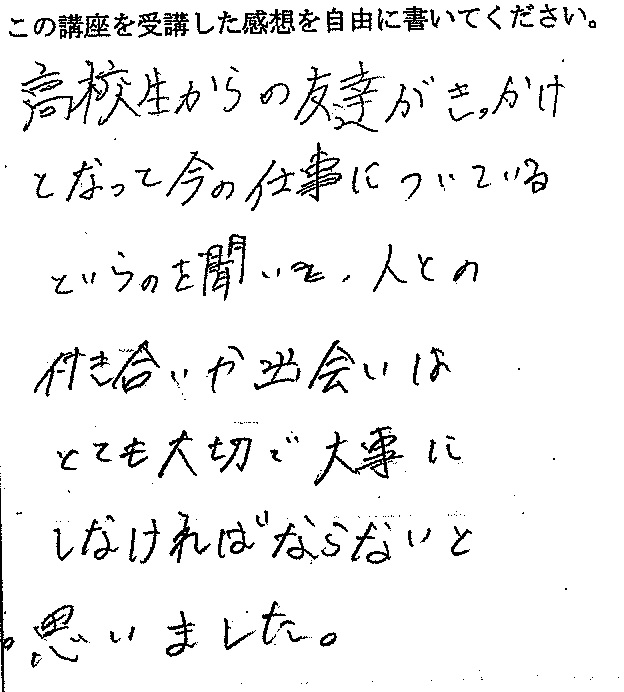 この講座を受講した感想を自由に書いてください。
高校生からの友達がきっかけ
となって今の仕事についている
というのを聞いて、人との
付き合いや出会いは
とても大切で大事に
しなければならないと
思いました。